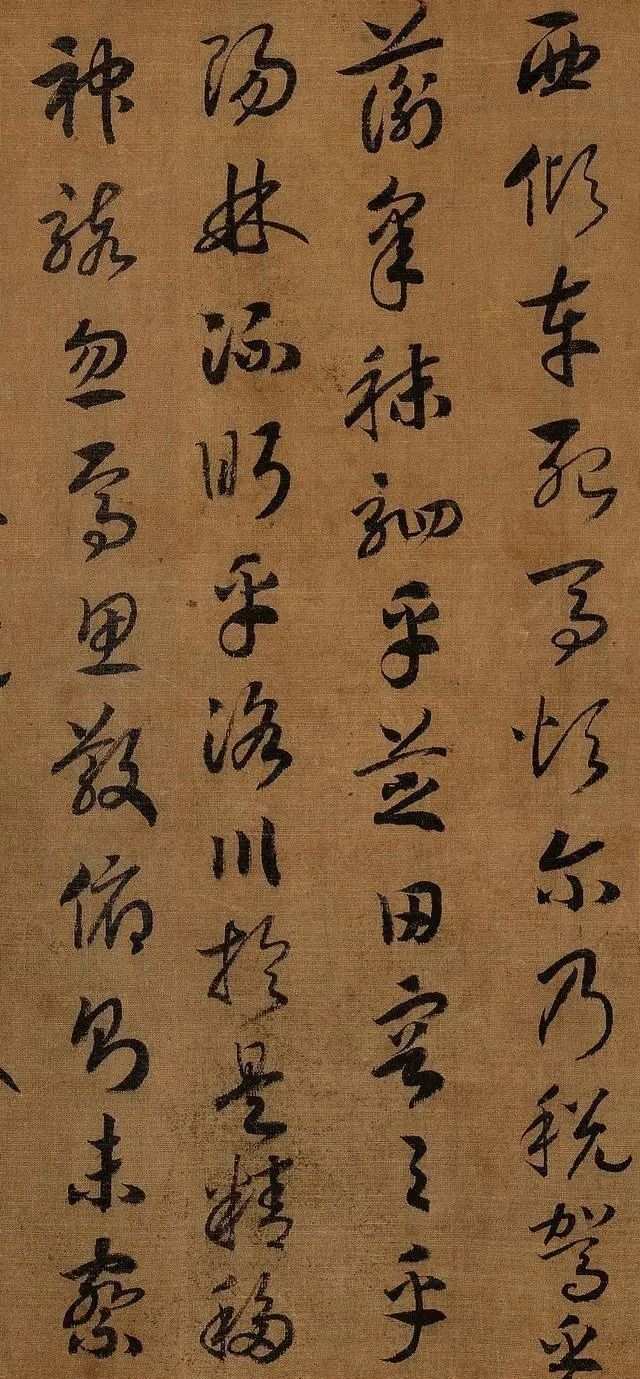 西傾車殆馬煩尔乃稅駕乎
蘅皋秣駟乎芝田容與乎
陽林流眄乎洛川於是精移
神駭忽焉思散俯則未察